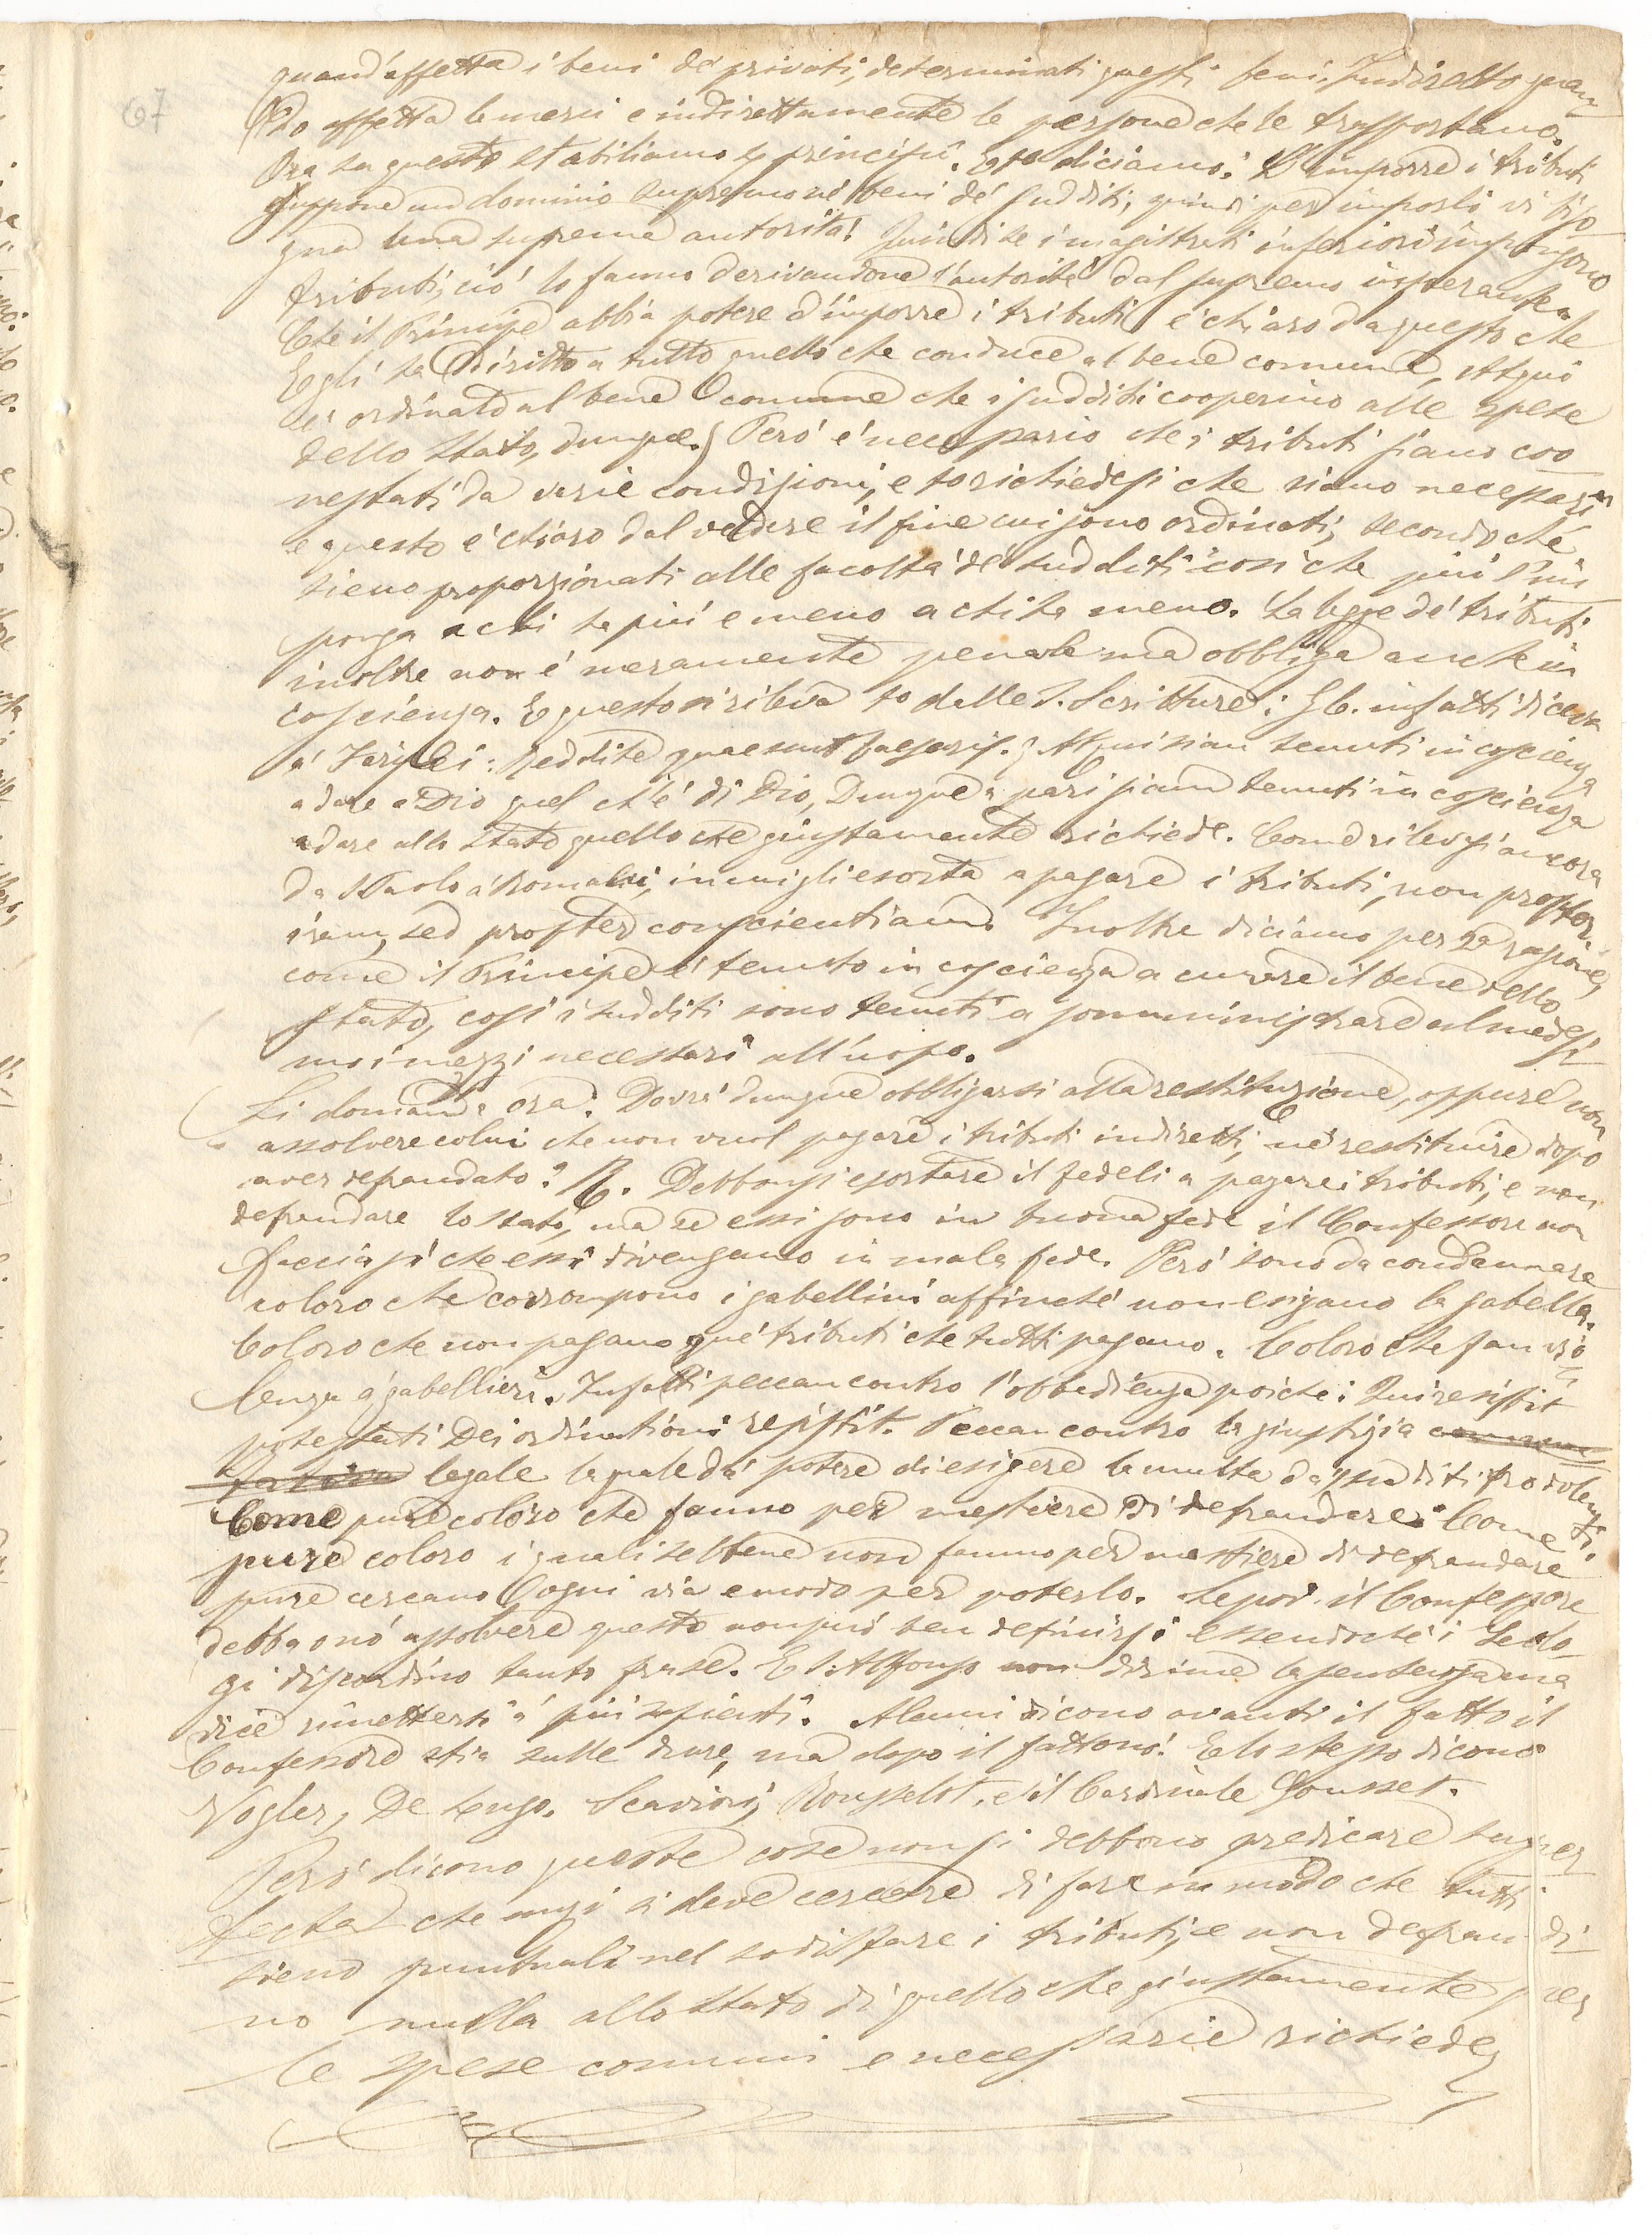 67
quand'affetta i beni de' privati, determinati questi beni. Indiretto quan
do affetta le merci e indirettamente le persone che le trasportano.
Ora su questo stabiliamo i principii. E 1o diciamo: L'imporre i tributi
suppone un dominio supremo ne' beni de' sudditi, quindi per imporli vi biso
gna una suprema autorità. Quindi se i magistrati inferiori impongono
tributi, ciò lo fanno derivandone l'autorità dal supremo imperante.
Che il Principe abbia potere d'imporre i tributi è chiaro da questo che
Egli ha diritto a tutto quello che conduce al bene comune, Atqui
è ordinato al bene comune che i sudditi cooperino alle spese
dello Stato, dunque. Però è necessario che i tributi siano coo
nestati da varie condizioni, e 1o richiedesi che siano necessari
e questo è chiaro dal vedere il fine cui sono ordinati, secondo che
sieno proporzionati alle facoltà de' sudditi così che più s'im
ponga a chi ha più e meno a chi ha meno. La legge de' tributi
inoltre non è meramente penale ma obbliga anche in
coscienza. E questo si rileva 1o dalle S. Scritture: G.C. infatti diceva
a' Farisei: Reddite quae sunt Caesaris. Atqui siam tenuti in coscienza
a dare a Dio quel ch'è di Dio, Dunque a pari siam tenuti in coscienza
a dare allo Stato quello che giustamente richiede. Come rilevasi ancora
da S. Paolo a' Romani, in cui gli esorta a pagare i tributi, non propter
iram, sed propter conscientiam. Inoltre diciamo per 2a ragione,
come il Principe è tenuto in coscienza a curare il bene dello
Stato, così i sudditi sono tenuti a somministrare al medesi
mo i mezzi necessari all'uopo.
Si domanda ora: Dovrà dunque obbligarsi alla restituzione, oppure non
assolvere colui che non vuol pagare i tributi indiretti, nè restituire dopo
aver defraudato? R. Debbonsi esortare il fedeli a pagare i tributi, e non
defraudare lo stato, ma se essi sono in buona fede il Confessore non
faccia sì che essi divengano in mala fede. Però sono da condannare
coloro che corrompono i gabellini affinché non esigano la gabella.
Coloro che non pagano que' tributi che tutti pagano. Coloro che fan vio
lenza a' gabellieri. Infatti peccan contro l'obbedienza poiché: Qui resistit
potestati Dei ordinationi resistit. Peccan contro la giustizia
legale la quale dà potere di esigere la multa da' sudditi frodolenti.
Come pure coloro che fanno per mestiere di defraudare. Come
pure coloro i quali sebbene non fanno per mestiere di defraudare
pure cercano ogni via e modo per poterlo. Se poi il Confessore
debba o nò assolvere questo non può ben definirsi essendoché i Teolo-
gi discordino tanto frase. E S. Alfonso non dirime la sentenza ma
dice rimettersi a' più sapienti. Alcuni dicono avanti il fatto il
Confessore stia sulle dure, ma dopo il fatto nò. E lo stesso dicono
Vogler, De Lugo, Scavini, Rousselot, e il Cardinale Gousset.
Però dicono queste cose non si debbono predicare super
tecta che anzi si deve cercare di fare in modo che tutti
sieno puntuali nel sodisfare i tributi, e non defraudi
no nulla allo Stato di quello che giustamente per
le spese comuni e necessarie richiede